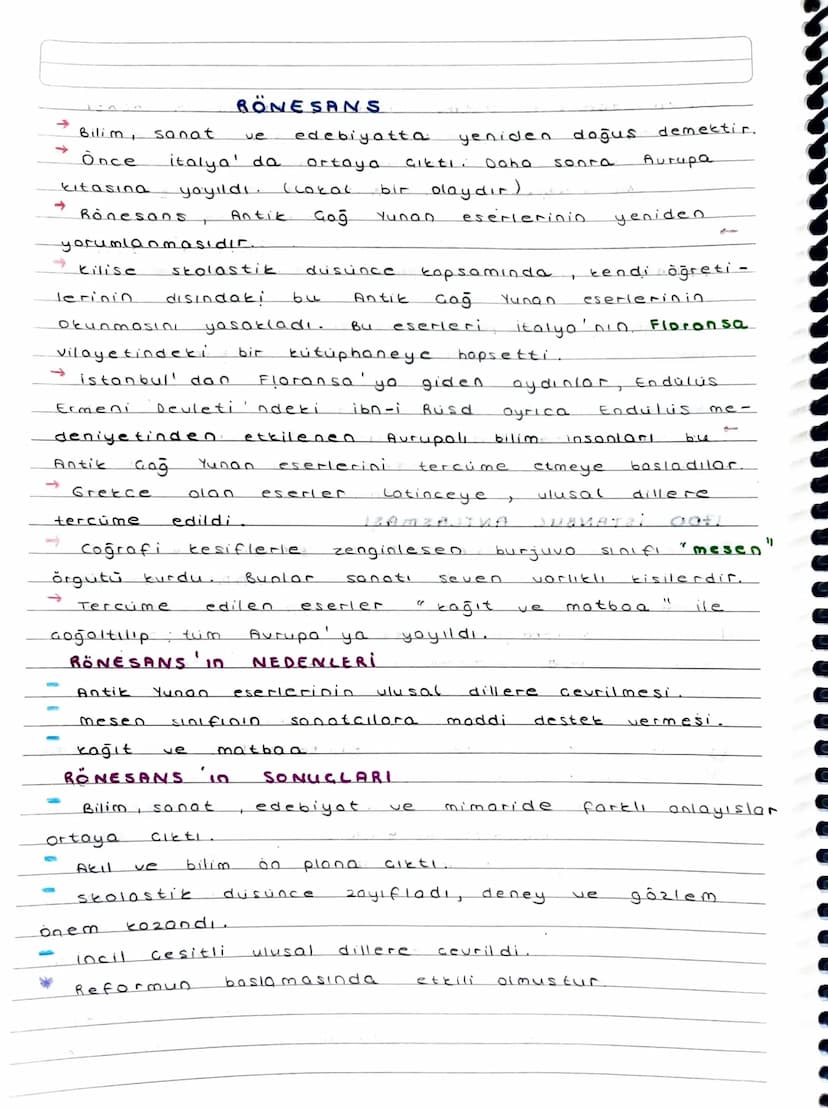 RÖNESANS
→ Bilim, sanat ve edebiyatta yeniden doğuş demektir.
→ Önce italya'da ortaya çıktı. Daha sonra Avrupa
kıtasına yayıldı. (Lokal bir olaydır)
→ Rönesans, Antik Çağ Yunan eserlerinin yeniden
yorumlanmasıdır.
→ Kilise skolastik düşünce kapsamında, kendi öğreti-
lerinin dışındaki bu Antik Çağ Yunan eserlerinin
okunmasını yasakladı. Bu eserleri italya'nın Floransa
vilayetindeki bir kütüphaneye hapsetti.
→ istanbul'dan Floransa'ya giden aydınlar, Endülüs
Ermeni Devleti'ndeki ibn-i Rüşd ayrıca Endülüs me-
deniyetinden etkilenen Avrupalı bilim insanları bu
Antik Çağ Yunan eserlerini tercüme etmeye başladılar.
→ Grekçe olan eserler Latinceye, ulusal dillere
tercüme edildi.
→ Coğrafi keşiflerle zenginleşen burjuva sınıfı "mesen"
örgütü kurdu. Bunlar sanatı seven varlıklı kişilerdir.
→ Tercüme edilen eserler "kağıt ve matbaa" ile
çoğaltılıp; tüm Avrupa'ya yayıldı.
RÖNESANS'ın NEDENLERİ
- Antik Yunan eserlerinin ulusal dillere çevrilmesi.
- mesen sınıfının sanatçılara maddi destek vermesi.
- kağıt ve matbaa
RÖNESANS'ın SONUÇLARI
- Bilim, sanat, edebiyat ve mimaride farklı anlayışlar
ortaya çıktı.
- Akıl ve bilim ön plana çıktı.
- skolastik düşünce zayıfladı, deney ve gözlem
önem kazandı.
- incil çeşitli ulusal dillere çevrildi.
* Reformun başlamasında etkili olmuştur.